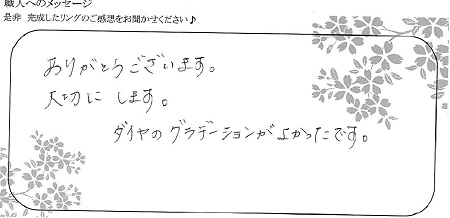 職人へのメッセージ
是非 完成したリングのご感想をお聞かせください♪
ありがとうございます。
大切に します。
ダイヤの グラデーションが よかったです。